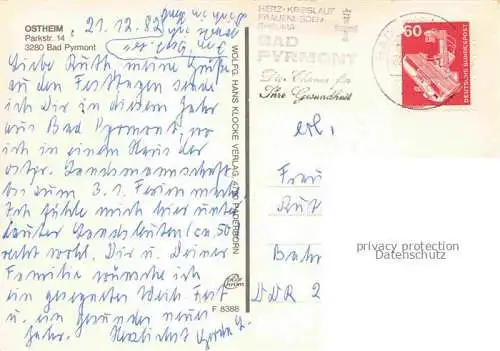 OSTHEIM
Parkstr. 14
3280 Bad Pyrmont
21. 12. 82
Liebe Ruth, meine Grüße
zu den Festtagen sende
ich Dir in diesem Jahr
aus Bad Pyrmont, wo
ich in einem Haus der
ostpr. Landsmannschaft
bis zum 3. 1. Ferien mache.
Ich fühle mich hier unter
lauter Landsleuten (ca. 50
recht wohl. Dir u. Deiner
Familie wünsche ich
ein gesegnetes Weih. Fest
u. ein gesundes neues
Jahr. Herzlichst
WOLFG. HANS KLOCKE VERLAG 4790 PADERBORN
F 8388
HERZ-KREISLAUF
FRAUENLEIDEN
RHEUMA
BAD
PYRMONT
Die Chance für
Ihre Gesundheit
60
DEUTSCHE BUNDESPOST
Frau
Rut
Bahn
DDR 2
privacy protection
Datenschutz